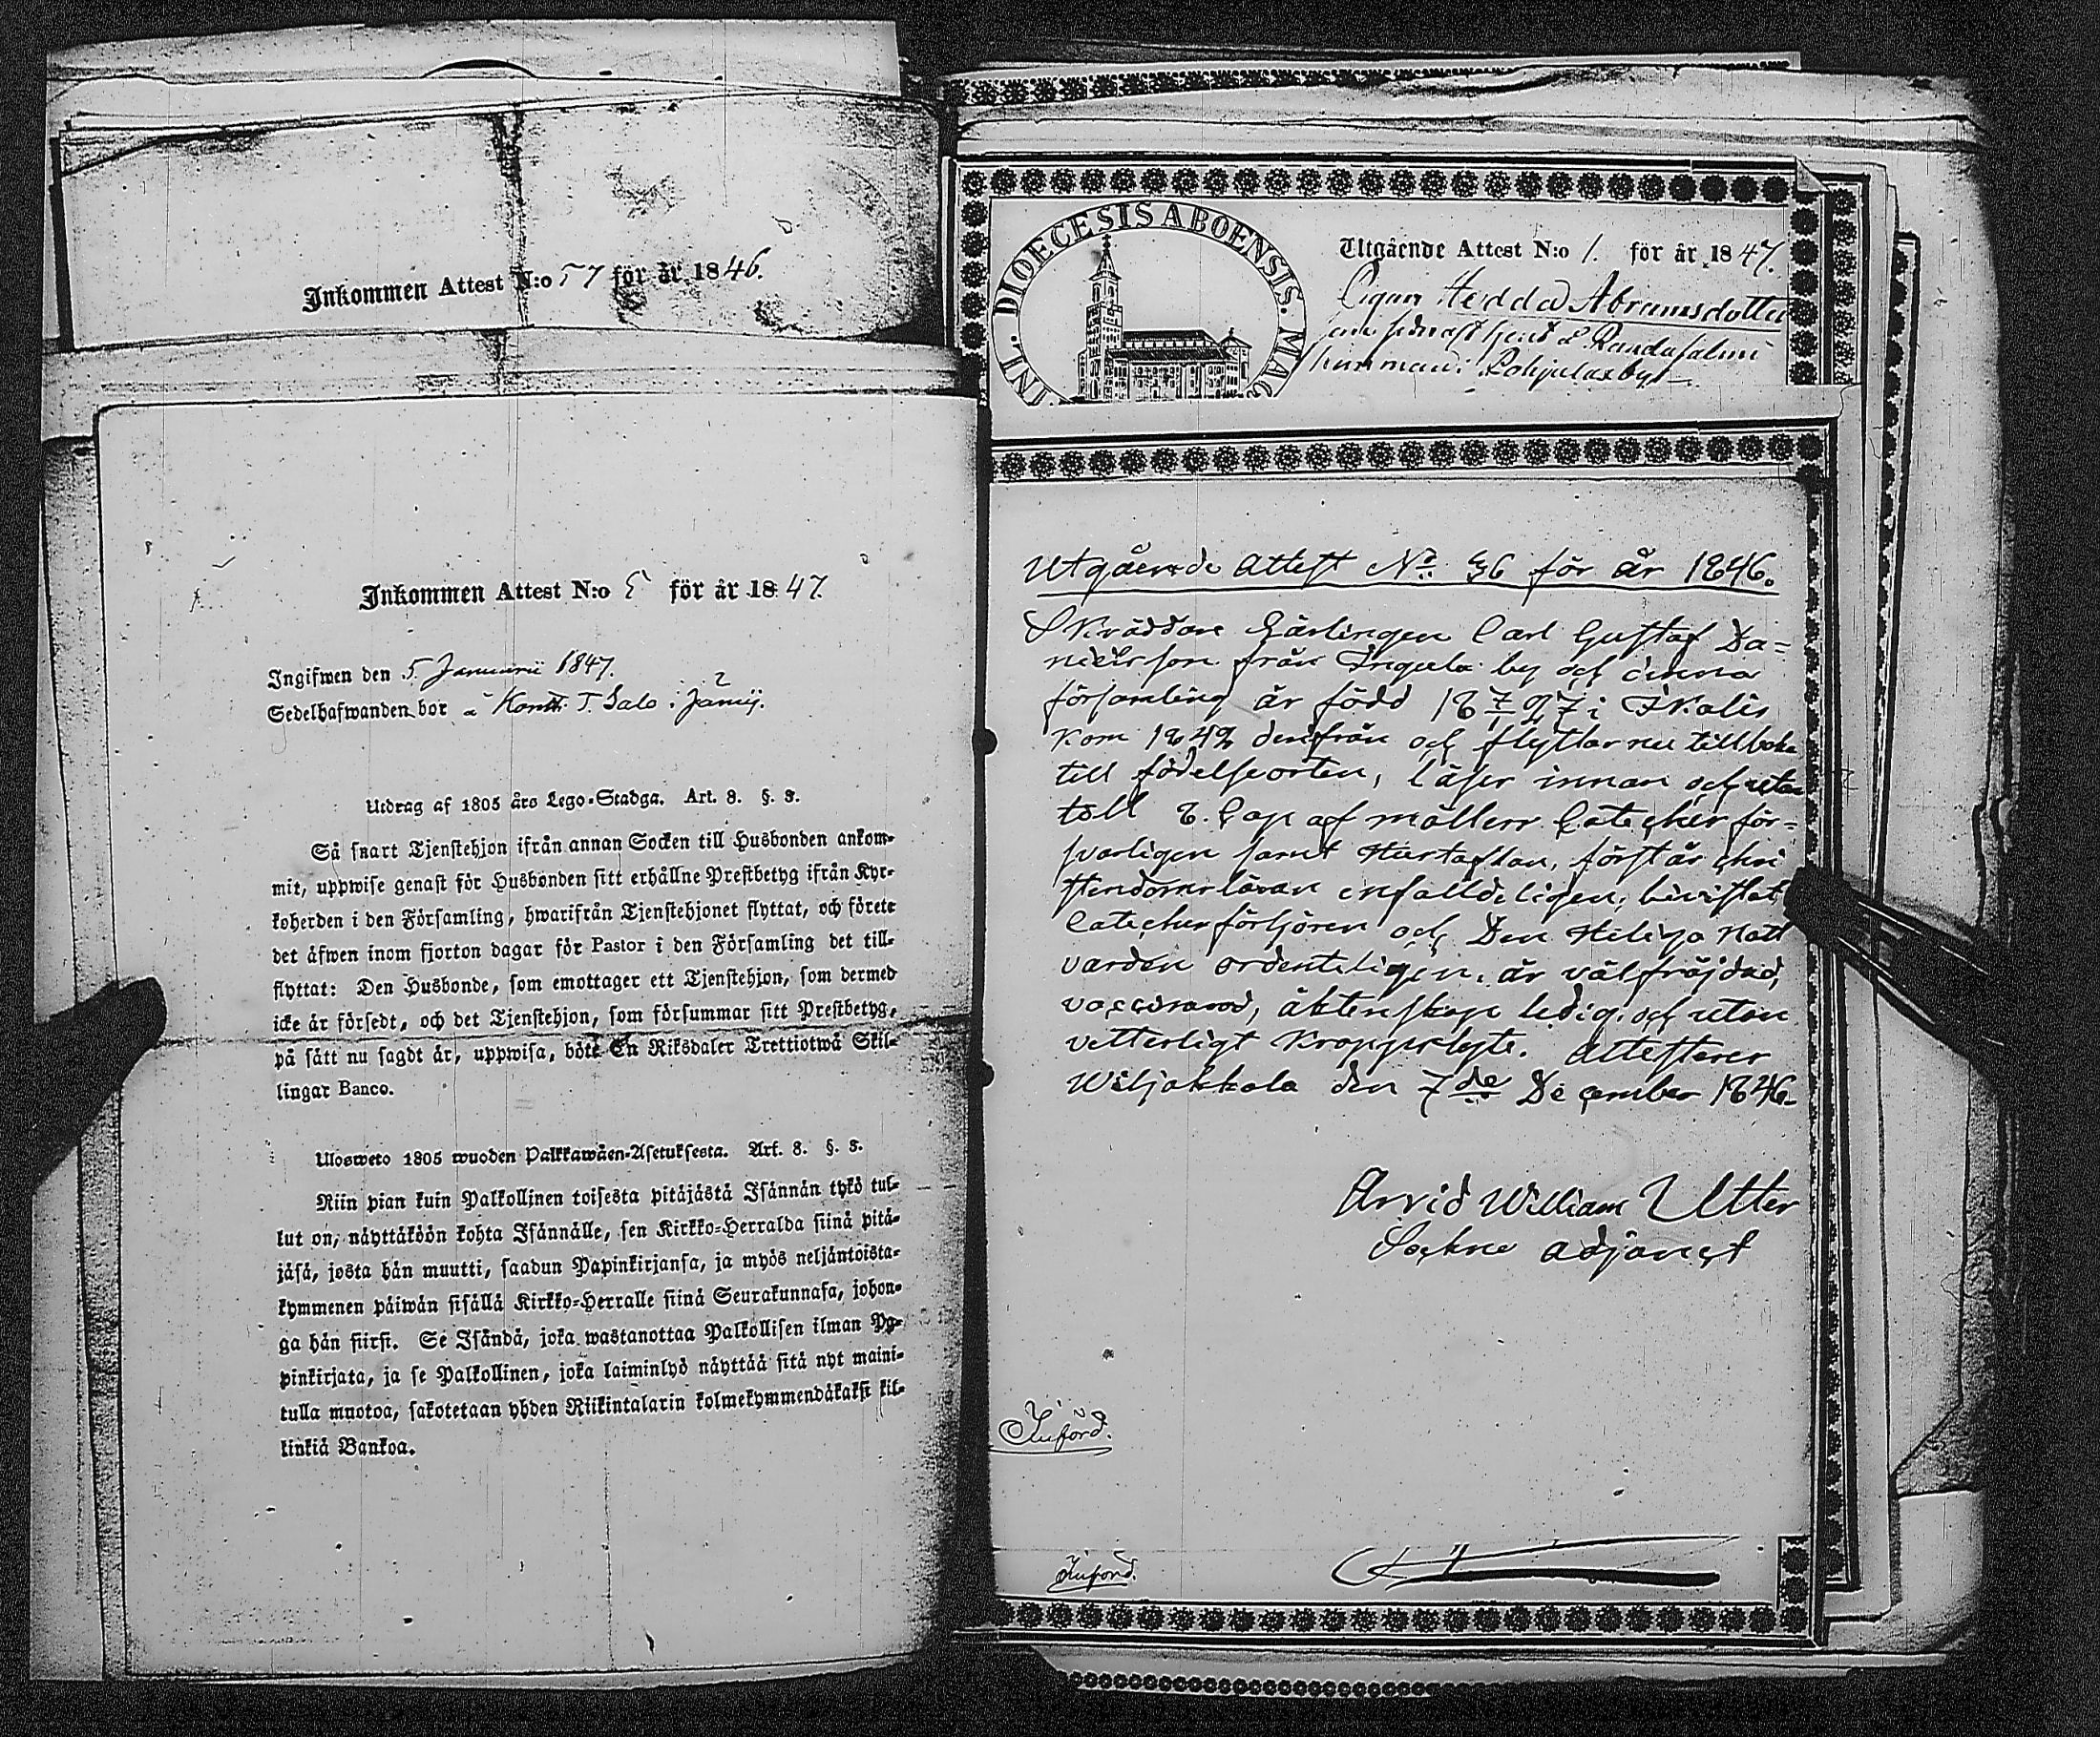 Inkommen Attest N:o 57 för år 1846.
Inkommen Attest N:o 5 för år 1847.
Ingifwen den 5 Januarii 1847.
Sedelhafwanden bor å T. Salo i Jämij.
Utdrag af 1805 års Lego-Stadga. Art. 8. §. 3.
Så snart Tjenstehjon ifrån annan Socken till Husbonden ankom-
mit, uppwise genast för Husbonden sitt erhållne Prestbetyg ifrån Kyr-
koherden i den Församling, hwarifrån Tjenstehjonet flyttat, och förete
det äfwen inom fjorton dagar för Pastor i den Församling det till-
flyttat: Den Husbonde, som emottager ett Tjenstehjon, som dermed
icke är försedt, och det Tjenstehjon, som försummar sitt Prestbetyg,
på sätt nu sagdt är, uppwisa, böte En Riksdaler Trettiotwå Skil-
lingar Banco.
Ulosweto 1805 wuoden Palkkawäen-Asetuksesta. Art. 8. §. 3.
Niin pian kuin Palkollinen toisesta pitäjästä Isännän tykö tul-
lut on, näyttäköön kohta Isännälle, sen Kirkko-Herralda siinä pitä-
jäsä, josta hän muutti, saadun Papinkirjansa, ja myös neljäntoista-
kymmenen päiwän sisällä Kirkko-Herralle siinä Seurakunnasa, johon-
ga hän siirsi. Se Isändä, joka wastanottaa Palkollisen ilman Pa-
pinkirjata, ja se Palkollinen, joka laiminlyö näyttää sitä nyt maini-
tulla muotoa, sakotetaan yhden Riikintalarin kolmekymmendäkaksi kil-
linkiä Bankoa.
INI. DIOECESIS ABOENSIS. MAG
Utgående Attest N:o 1. för år 1847.
Pigan Hedda Abramsdotter
som sednast tjent å Randasalmi
hemman i Pohjulaxby
Utgående Attest No. 36 för år 1846.
Skräddare Lärlingen Carl Gustaf Da=
nielsson från Inqula by och denna
församling är född i Ikalis
kom 1842 derifrån och flyttar nu tillbaka
till födelseorten, läser innan och utan
till Cap af mollers Cateches för=
svarligen samt Hustaflan, förstår chri
stendomsläran enfalldeligen, bivistat
Catechesförhören och Den Heliga Natt
varden ordenteligen, är välfräjdad,
vaccinerad, äktenskaps ledig och utan
vetterligt kroppslyte. Attesterer
Wiljakkala den 7de December 1846.
Arvid William Utter
Sockne adjunct
Införd.
Införd.